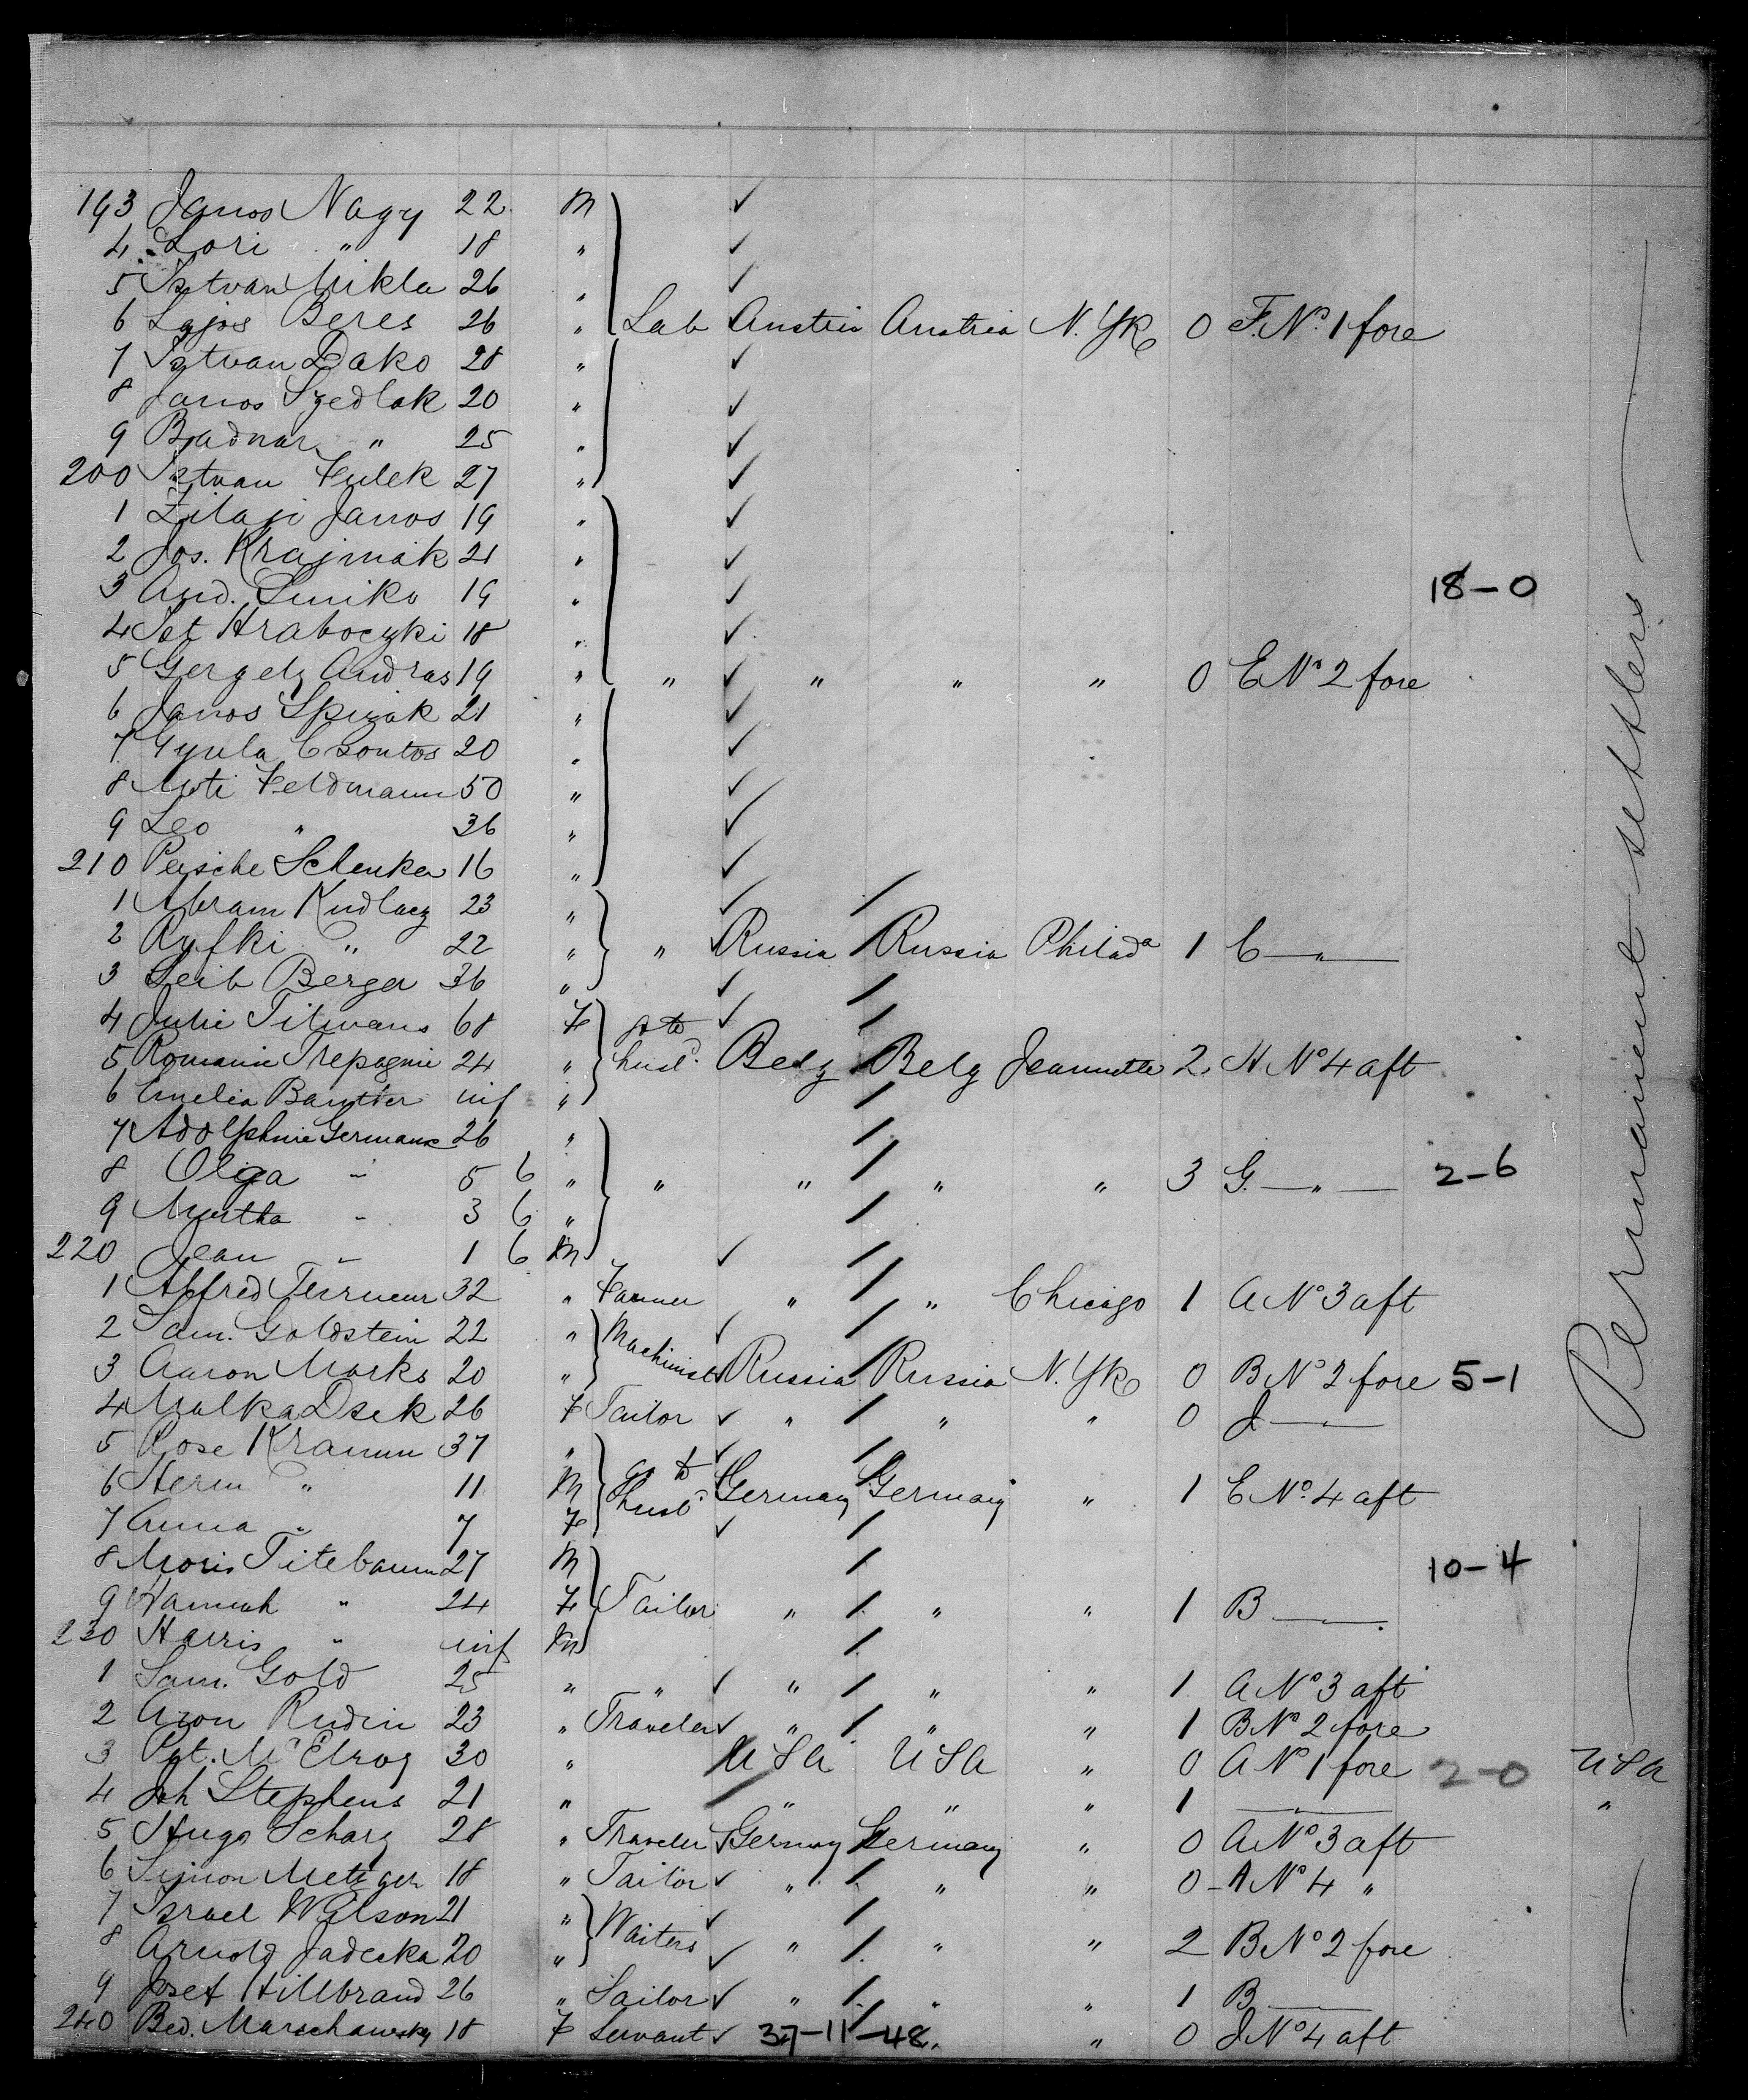 193 Janos Nagy 22 M
4 Lori " 18 "
5 Istvan Mikla 26 "
6 Lajos Beres 26 " Lab Austria Austria N. Yk 0 F. No. 1 fore
7 Istvan Dako 28 "
8 Janos Szedlak 20 "
9 Badnar " 25 "
200 Istvan Fulek 27 "
1 Zilaji Janos 19 "
2 Jos. Krajmak 21 "
3 And. Simko 19 " 18-0
4 Ist Hraboczki 18 "
5 Gergely Andras 19 " " " " " 0 E No 2 fore
6 Janos Spizak 21 "
7 Gyula Csontos 20 "
8 Moti Feldmann 50 "
9 Leo " 36 "
210 Peische Schenker 16 "
1 Abram Kudlacz 23 "
2 Ryfki " 22 " " Russia Russia Philada 1 C "
3 Leib Berger 36 "
4 Julie Tilmans 68 F go to
5 Romanie Trepagnie 24 " husb. Belg Belg Jeannette 2 H No 4 aft
6 Emelia inf "
7 Adolphine Germane 26 "
8 Olga " 5 6 " " " " " 3 G. " 2-6
9 Martha " 3 6 "
220 Jean " 1 6 M
1 Alfred 32 " Farmer " " Chicago 1 A No 3 aft
2 Sam. Goldstein 22 " Machinist
3 Aaron Marks 20 " Russia Russia N. Yk 0 B No 2 fore 5-1
4 Malka Dsek 26 F Tailor " " " 0 J "
5 Rose Kramm 37 " go to
6 Herm " 11 M husb. Germany Germany " 1 E No. 4 aft
7 Anna " 7 F
8 Moris Titebaum 27 M 10-4
9 Hannah " 24 F Tailor " " " 1 B "
230 Harris " inf M
1 Sam. Gold 25 " " " " " 1 A No 3 aft
2 Aron Rudin 23 " Traveler " " " 1 B No 2 fore
3 Pat. McElroy 30 " USA USA " 0 A No 1 fore 2-0 USA
4 Joh Stephens 21 " " " " 1 " "
5 Hugo Scharz 28 " Traveler Germany Germany " 0 A No 3 aft
6 Simon Metzger 18 " Tailor " " " 0 A No 4 "
7 Israel Watson 21 " Waiters
8 Arnold Jadecka 20 " " " " 2 B No 2 fore
9 Josef Hillbrand 26 " Sailor " " " 1 B "
240 Bed. Marschawsky 18 F Servant 37-11-48. " 0 J No 4 aft
Permanent settlers